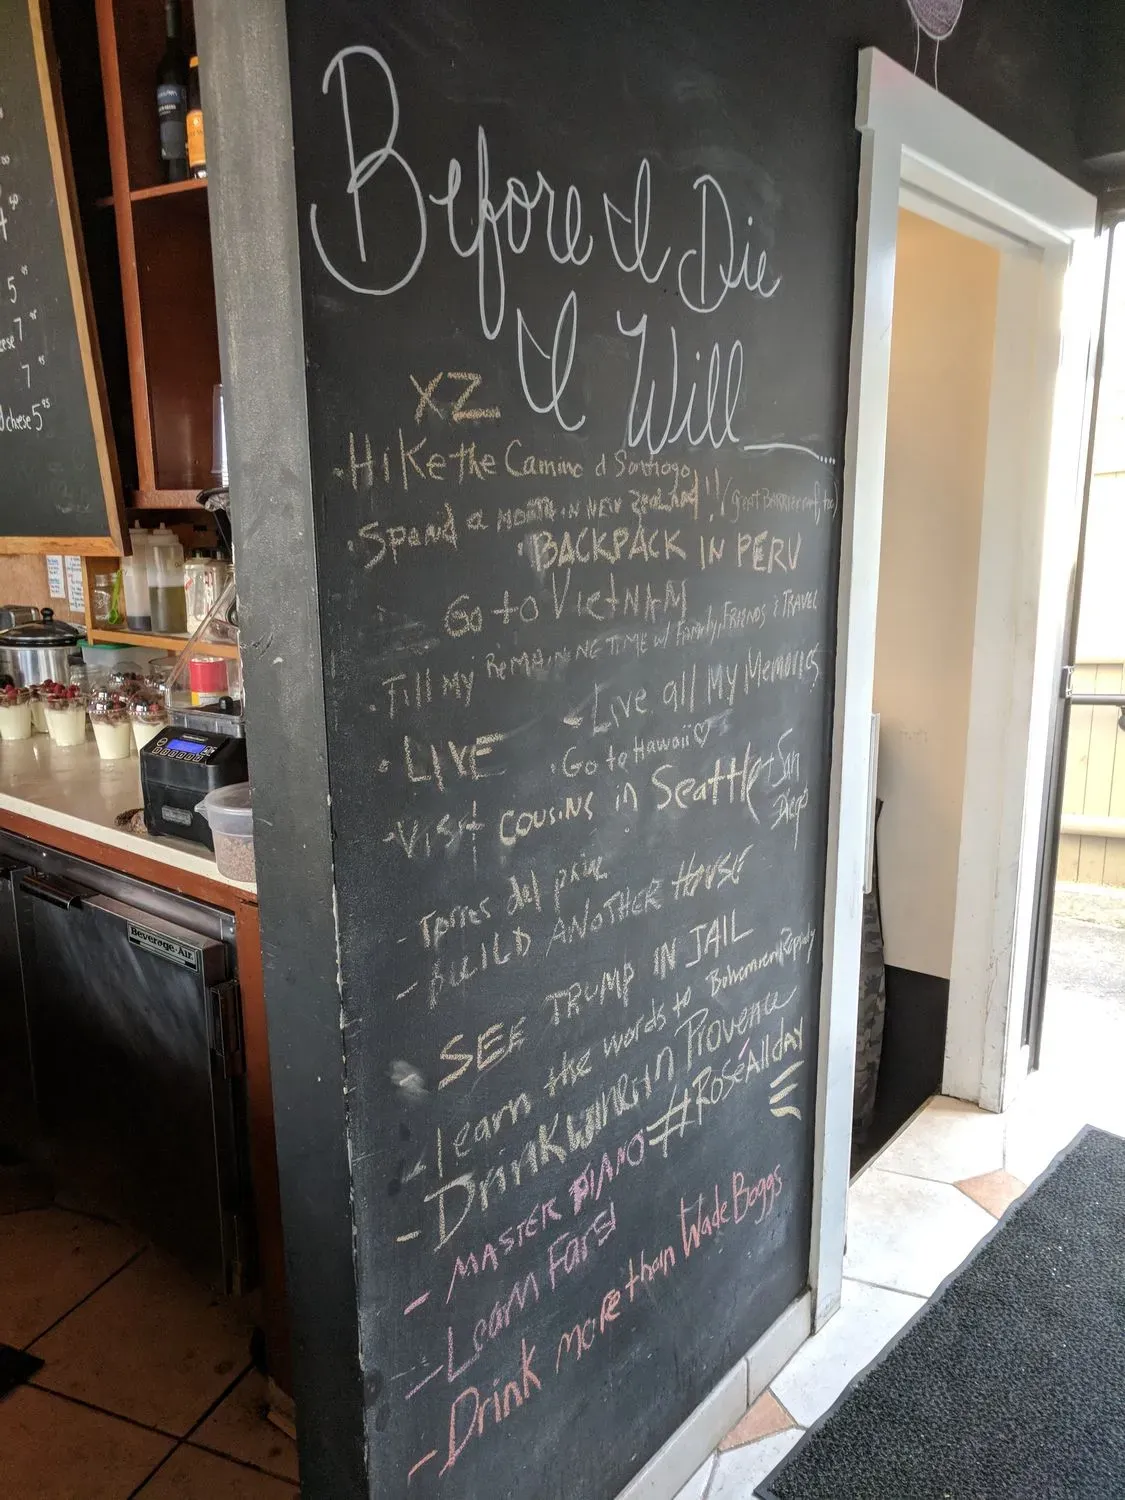 Before I Die
I Will
XZ
· Hike the Camino d Santiago
· Spend a month in New Zealand!! (great Barrier reef too)
· BACKPACK IN PERU
Go to VietNAM
· Fill my remaining time w/ Family, Friends & Travel
- Live all My Memories
· LIVE
· Go to Hawaii ♡
- Visit cousins in Seattle + San Diego
- Torres del paine
- BUILD ANOTHER HOUSE
SEE TRUMP IN JAIL
- learn the words to Bohemian Rhapsody
- Drink wine in Provence
#RoséAllday
- MASTER PIANO
- Learn Farsi
- Drink more than Wade Boggs
Beverage-Air
5
7
7
cheese 5